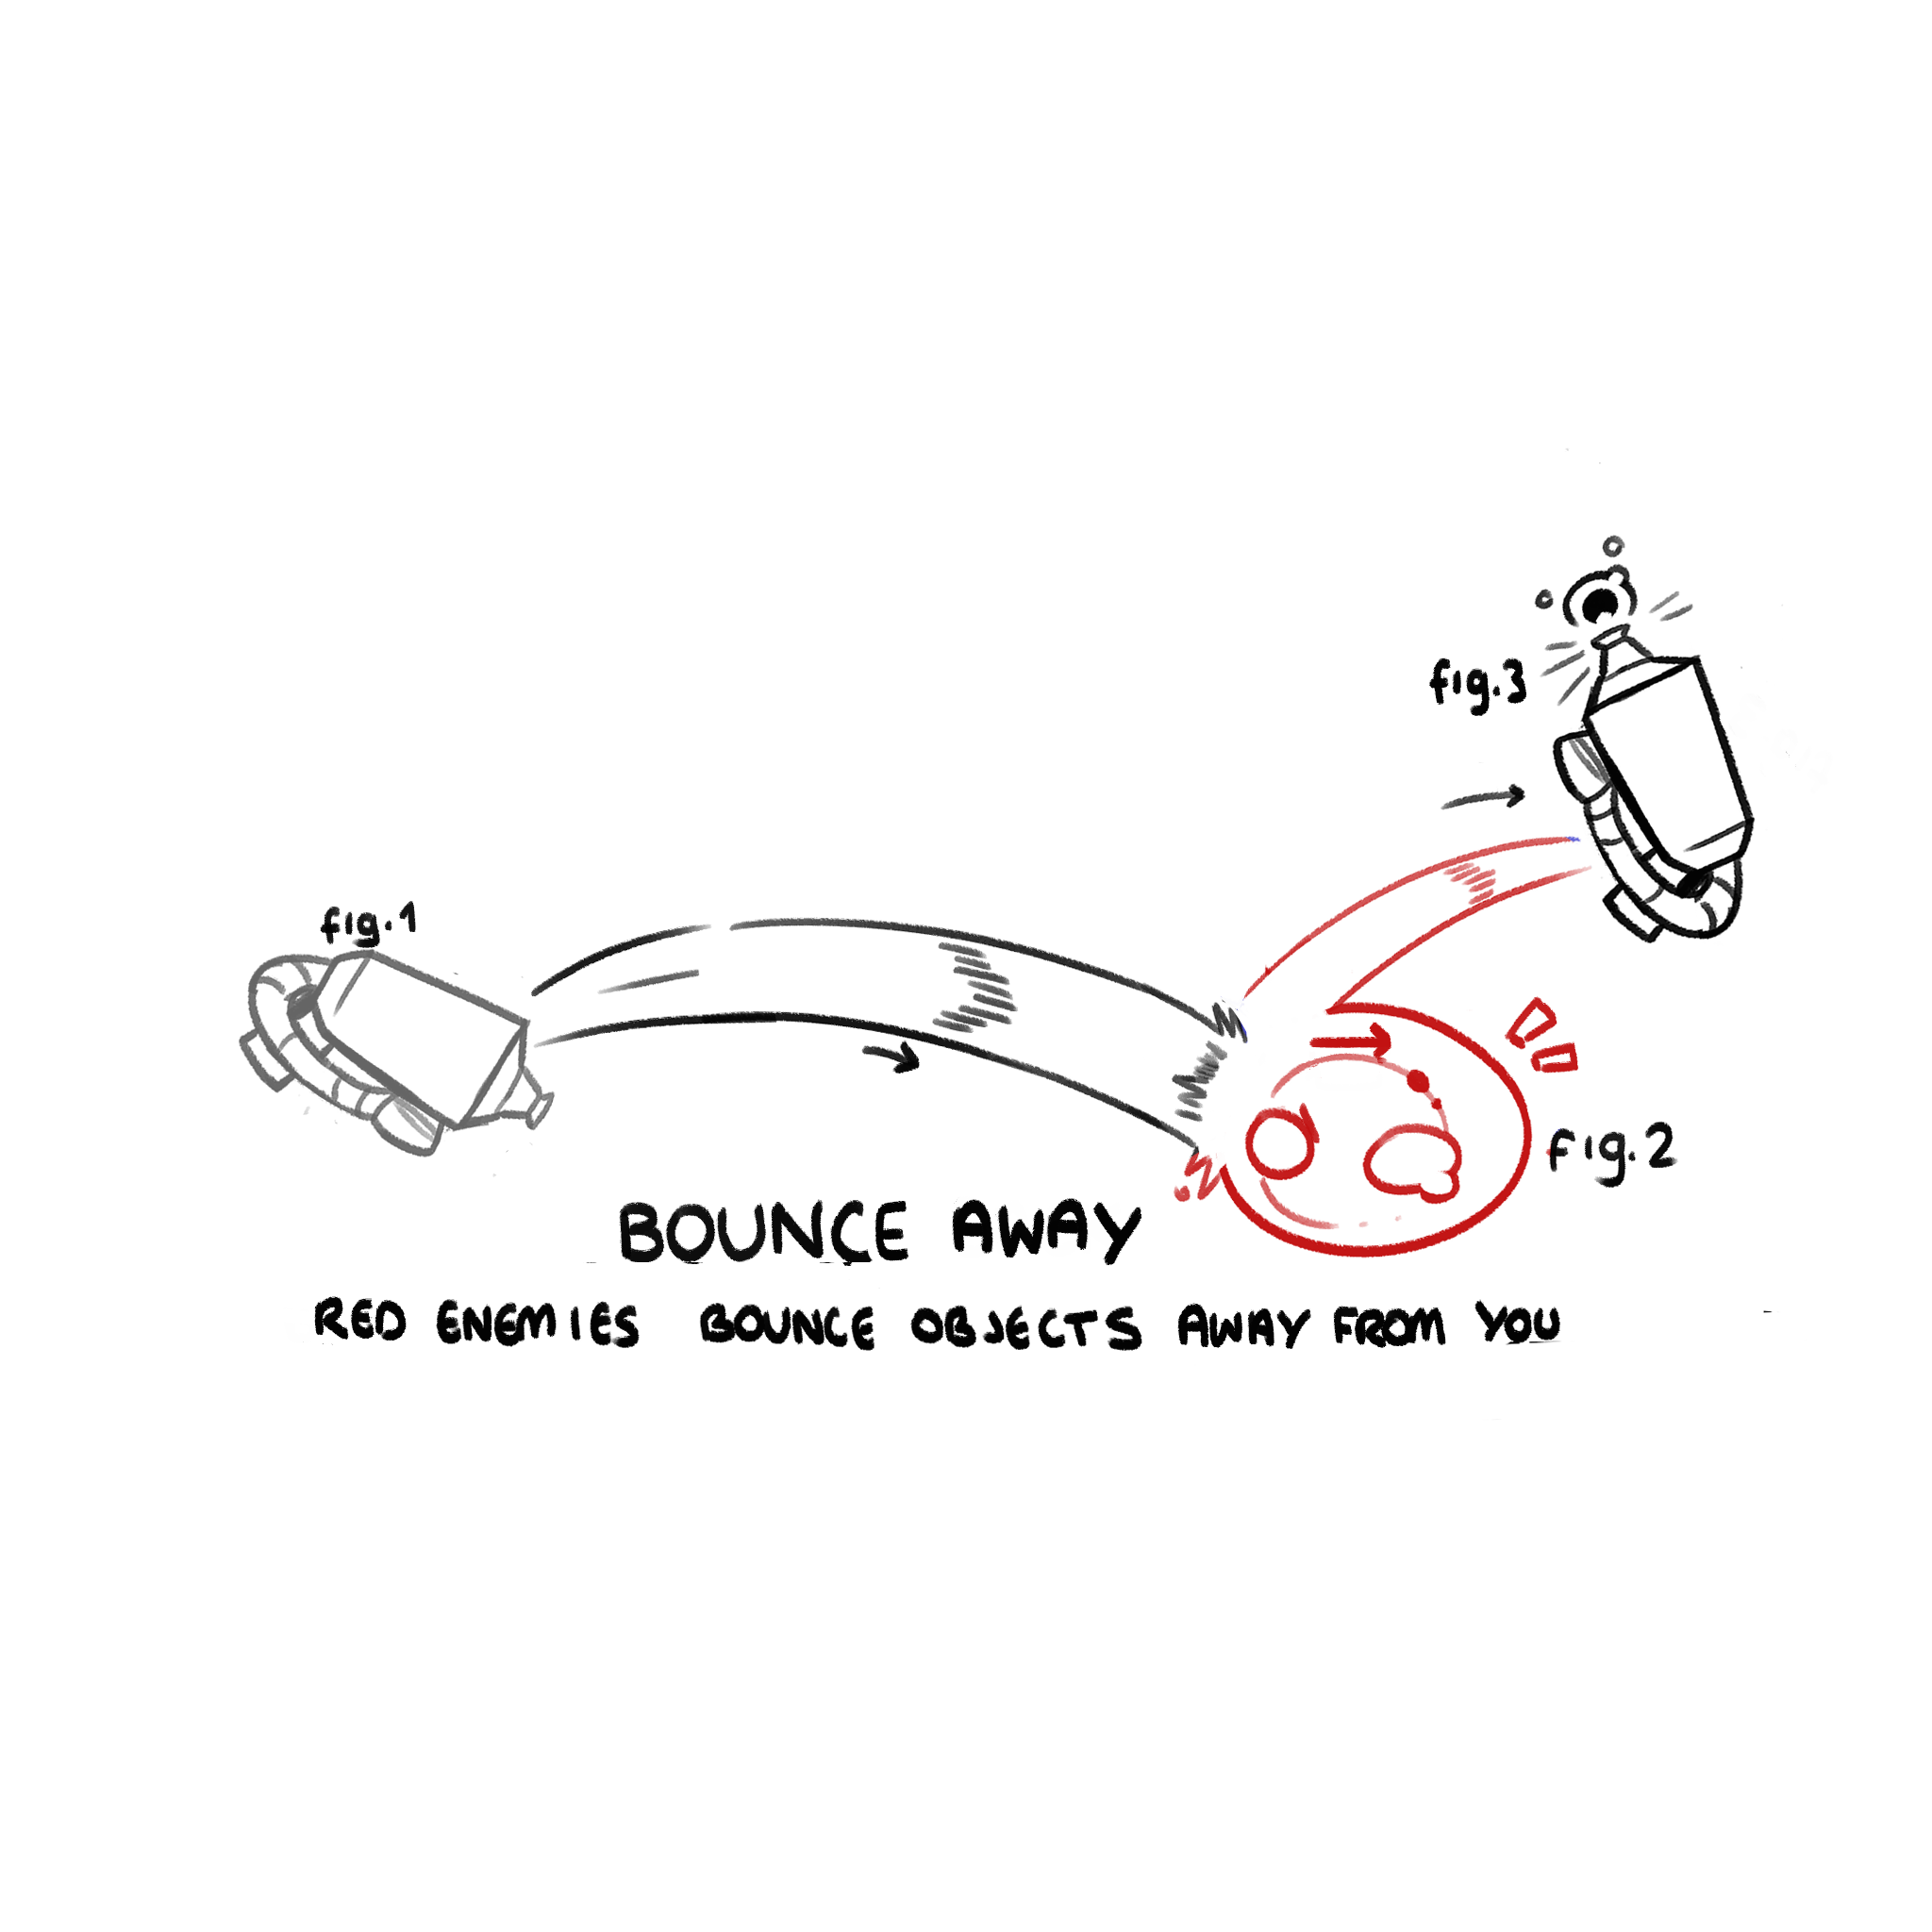 fig.3
fig.1
fig.2
BOUNCE AWAY
RED ENEMIES BOUNCE OBJECTS AWAY FROM YOU